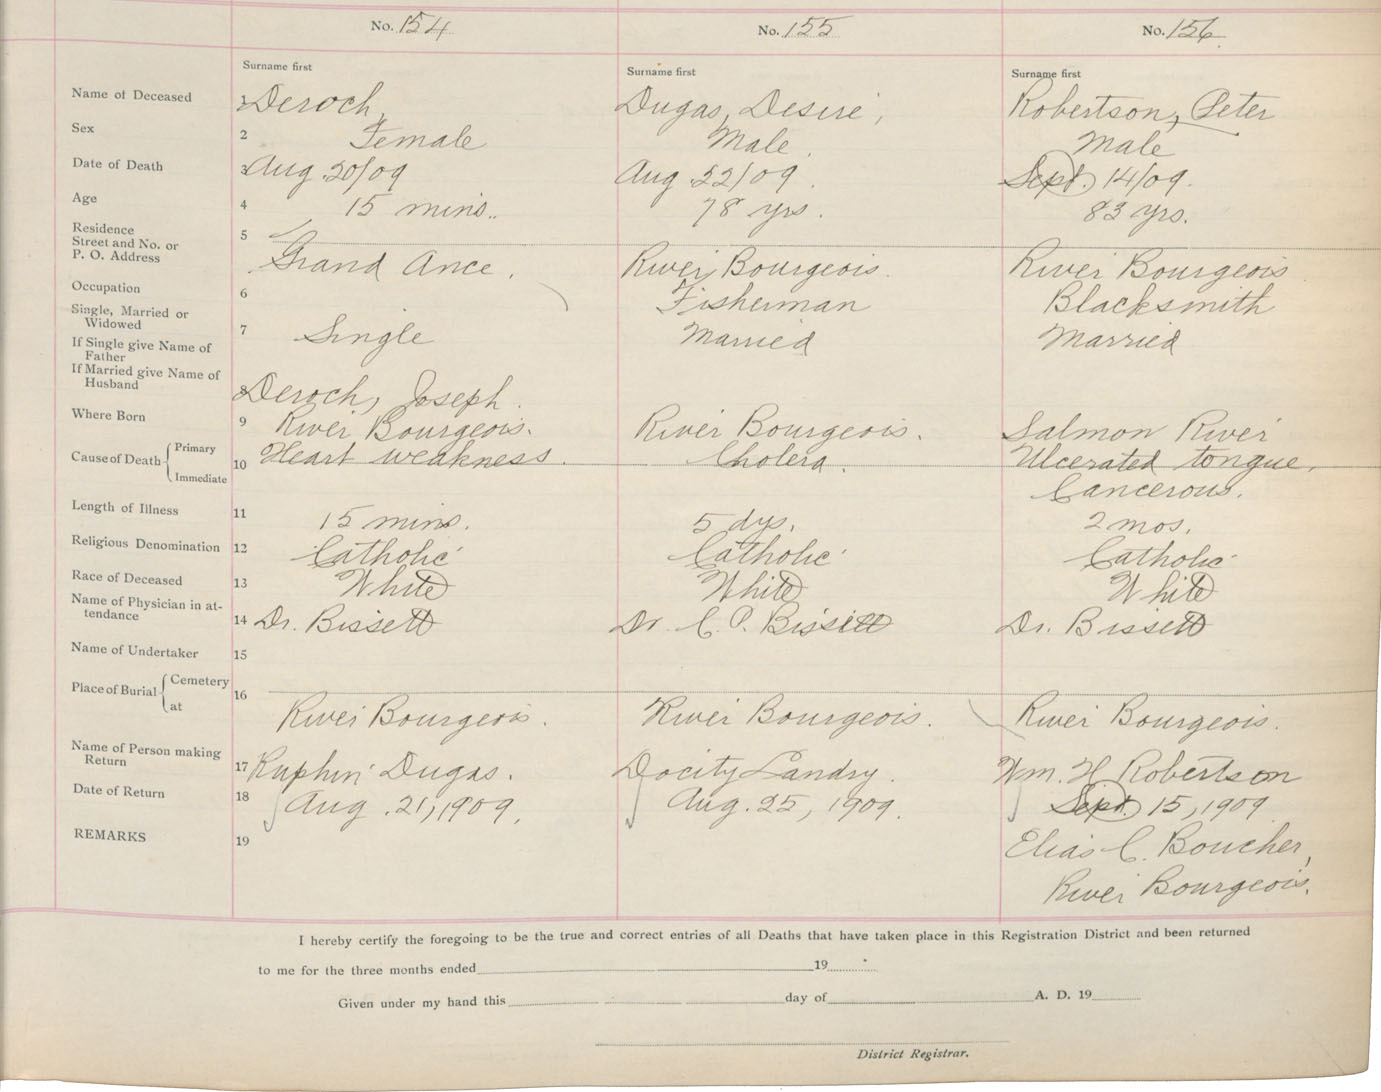 No. 154 No. 155 No. 156
Surname first Surname first Surname first
Name of Deceased 1 Deroch, Dugas, Desiré, Robertson, Peter
Sex 2 Female Male Male
Date of Death 3 Aug. 20/09 Aug. 22/09. Sept. 14/09.
Age 4 15 mins.. 78 yrs. 83 yrs.
Residence 5
Street and No. or
P. O. Address Grand Ance. River Bourgeois. River Bourgeois
Occupation 6 Fisherman Blacksmith
Single, Married or
Widowed 7 Single Married Married
If Single give Name of
Father
If Married give Name of
Husband 8 Deroch, Joseph.
Where Born 9 River Bourgeois. River Bourgeois. Salmon River
Cause of Death { Primary
10 Heart weakness. Cholera. Ulcerated tongue,
Immediate Cancerous.
Length of Illness 11 15 mins. 5 dys. 2 mos.
Religious Denomination 12 Catholic Catholic Catholic
Race of Deceased 13 White White White
Name of Physician in at-
tendance 14 Dr. Bissett Dr. C. P. Bissett Dr. Bissett
Name of Undertaker 15
Place of Burial { Cemetery 16
at River Bourgeois. River Bourgeois. River Bourgeois.
Name of Person making
Return 17 Ruphin Dugas. Docity Landry. Wm. H Robertson
Date of Return 18 Aug. 21, 1909. Aug. 25, 1909. Sept. 15, 1909
REMARKS 19 Elias C. Boucher,
River Bourgeois.
I hereby certify the foregoing to be the true and correct entries of all Deaths that have taken place in this Registration District and been returned
to me for the three months ended 19
Given under my hand this day of A. D. 19
District Registrar.